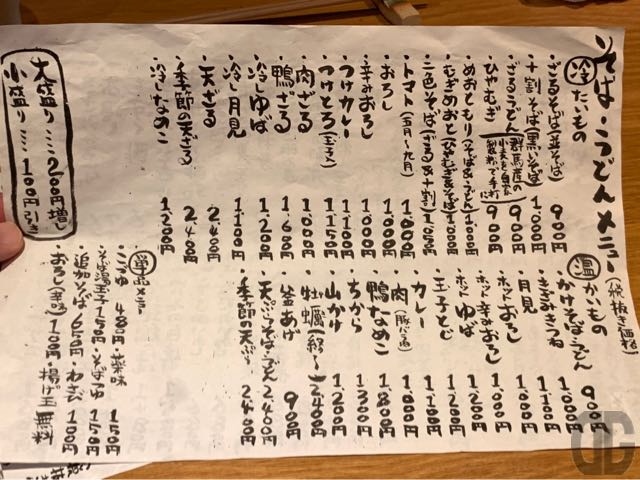 そば・うどんメニュー
(税抜き価格)
冷たいもの
・ざるそば(並そば) 900円
・十割そば(黒いそば) 1.000円
・ざるうどん 900円
・ひやむぎ 900円
・めおともり(そば&うどん) 1.000円
・むぎめおと(ひやむぎ&そば) 1.000円
・二色そば(ざる&十割) 1.050円
・トマト(五月〜九月) 1.600円
・おろし 1.000円
・辛みおろし 1.000円
・つけカレー 1.100円
・つけとろ(玉子) 1.150円
・肉ざる 1.000円
・鴨ざる 1.600円
・冷しゆば 1.200円
・冷し月見 1.100円
・天ざる 2.400円
・季節の天ざる 2.400円
・冷しなめこ 1.200円
温かいもの
・かけそば・うどん 900円
・きざみきつね 1.000円
・月見 1.100円
・ホットおろし 1.000円
・ホット辛みおろし
・ホットゆば 1.200円
・玉子とじ 1.100円
・カレー
・肉
・鴨なめこ 1.800円
・ちから 1.300円
・山かけ 1.200円
・牡蠣
・釜あげ 900円
・天ぷらそば・うどん 2.400円
・季節の天ぷら 2.400円
大盛り……200円増し
小盛り……100円引き
単品メニュー
・薬味 150円
・そば湯玉子 150円
・そばつゆ 150円
・追加そば 650円
・わさび 100円
・おろし(辛味) 100円
・揚げ玉 無料